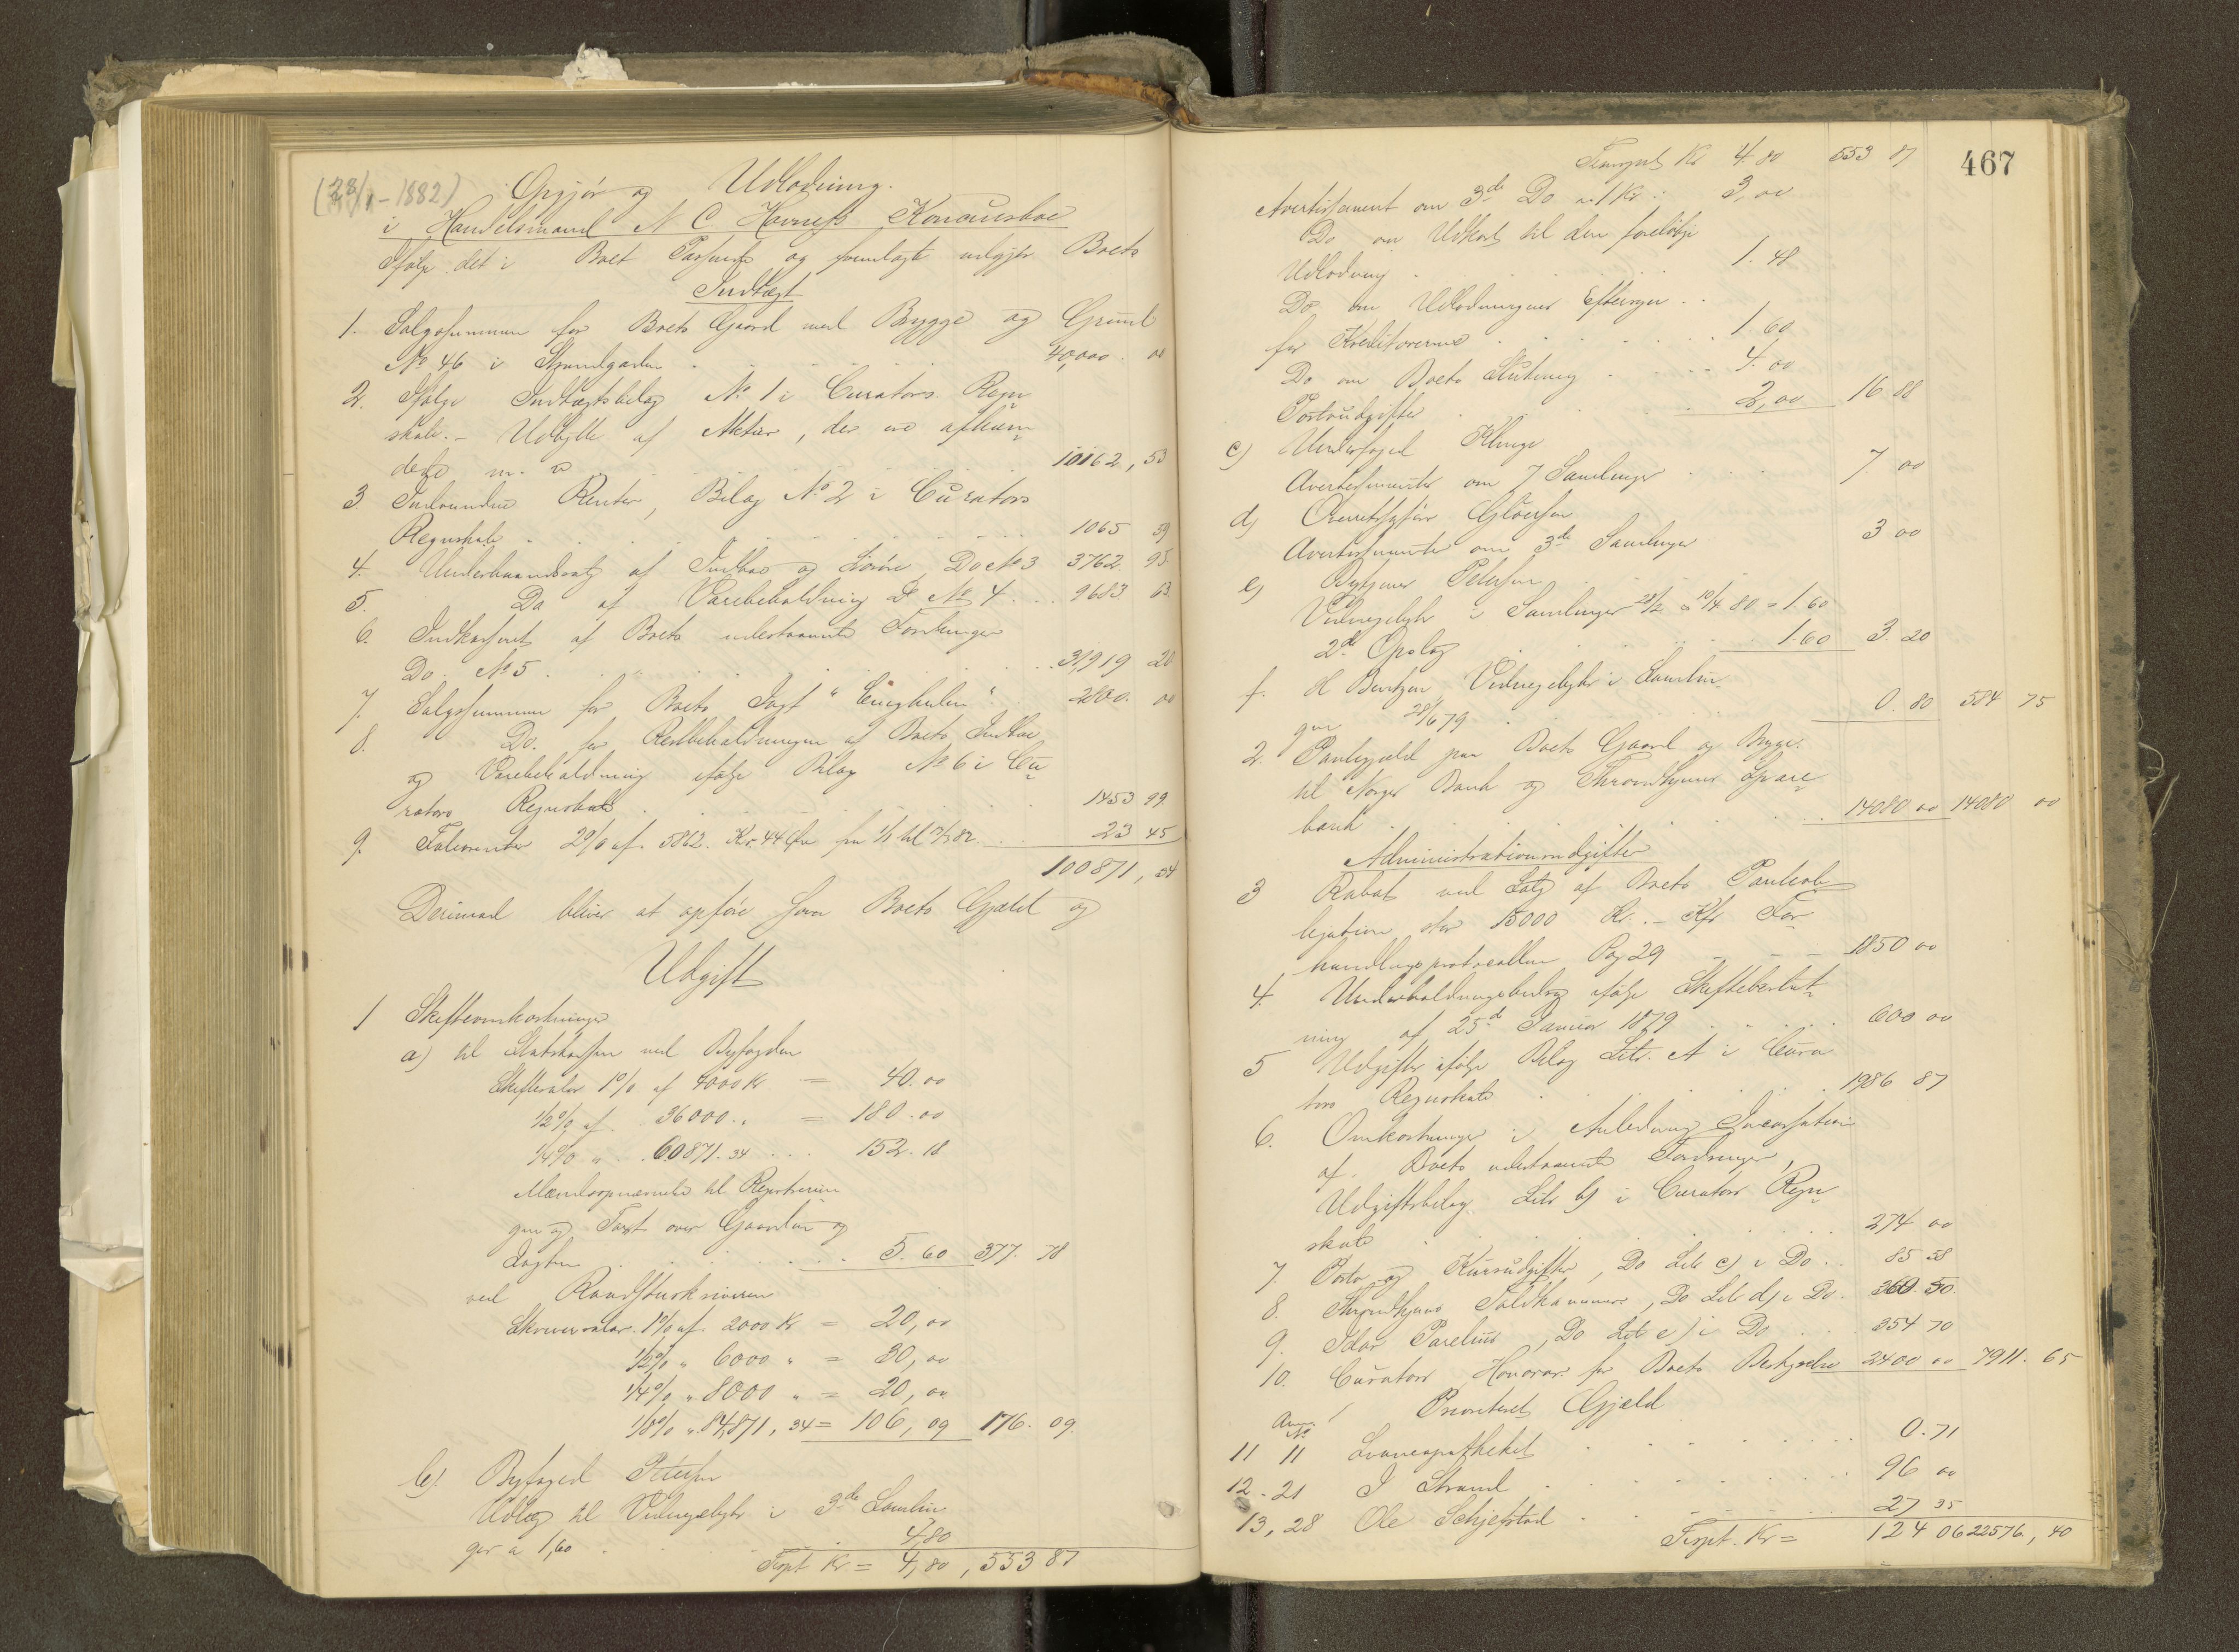 (28/1 - 1882) Opgjør og Udlodning.
i Handelsmand N C. Havnesss Konkursbo
Ifølge det i Boet Passerede og fremlagte udgjør Boets
Indtægt
1. Salgssummen for Boets Gaard med Brygge og Grund
No 46 i Strandgaden . . . . . . 40,000. 00
2. Ifølge Indtægtsbilag No 1 i Curators Regn
skab. - Udbytte af Aktier, der ere afhæn
dede m. v. . . . . 10162, 53
3 Indvundne Renter, Bilag No 2 i Curators
Regnskab . . . . . . 1065 59
4. Underhaandssalg af Indbo og Løsøre, Do No 3 3762. 95.
5. Do af Varebeholdning Do No 4 . . . 9683 63
6. Indkasseret af Boets udestaaende Fordringer
Do. No 5 . . . . . . 31,919 20
7. Salgssummen for Boets Jagt " " 2800. 00
8. Do. for Restbeholdningen af Boets Indbo
og Varebeholdning ifølge Bilag No 6 i Cu
rators Regnskab . . . . . 1453 99.
9. Foliorenter 2% af 5862. Kr. 44 Øre fra 1/1 til 82 . . . 23 45
100871, 34
Derimod bliver at opføre som Boets Gjæld og
Udgift
1 Skifteomkostninger
a) til Statskassen ved Byfogden
Skiftesalær 1% af 4000 Kr = 40. 00
1/2% af 36000. " = 180. 00
1/4% " 60871. 34 . . . 152. 18
Mændsopnævnelse til Registrerin
gen og Taxt over Gaarden og
Jagten . . . . . 5. 60 377. 78
ved Raadstueskriveren
Skriversalær. 1% af 2000 Kr = 20, 00
1/2% " 6000 " = 30, 00
1/4% " 8000 " = 20, 00
1/8% " 84,871, 34 = 106, 09 176. 09.
b) Byfoged
Udlæg til Vidnegebyhr i 3de Samlin
ger a 1,60 . . . . 4,80
Trspt Kr = 4,80, 553 87
467
Transport Kr 4. 80 553 87
Avertissement om 3de Do a 1 Kr : 3, 00
Do om Udkast til den foreløbige
Udlodning . . . . . 1. 48
Do. om Udlodningens . .
for Kreditorerne . . . . 1 60
Do om Boets Slutning . . . . 4. 00
Portoudgifter . . . . . 2,00 16 88
c) Underfoged Klinge
Avertissementer om 7 Samlinger . . . 7 00
d) Overretssagfører
Avertissementer om 3de Samlinger 3 00
e) Bytjener Petersen
Vidnegebyhr i Samlinger 28/2 & 10/4 80 = 1. 60
2de Opslag . . . . 1. 60 3. 20
f. H Berntzen Vidnegebyhr i Samlin
gen 28/6 79 . . . . 0. 80 584 75
2. Pantegjæld paa Boets Gaard og Brygge
til Norges Bank og Throndhjems Spare
bank . . . . . . 14080 00 14080 00
Administrationsudgifter
3 Rabat ved Salg af Boets Panteob
ligation stor 15000 Kr. - Kfr For
handlingsprotocollen Pag 29 - - - 1850 00
4. Underholdningsbidrag ifølge Skiftebeslut
ning af 25de Januar 1879 . . . . . 600 00
5 Udgifter ifølge Bilag Litr. A i Cura
tors Regnskab . . . . . 1986 87
6. Omkostninger i Anledning Incassation
af Boets udestaaende Fordringer,
Udgiftsbilag Litr b) i Curators Regn
skab . . . . . . 274 00
7. Porto og Kursudgifter, Do Litr c) i Do . . 85 58
8. Throndhjems Toldkammer, Do Litr d) i Do. 360. 50.
9. Idar Parelius, Do Litr e) i Do . . 354 70
10. Curators Honorar for Boets Bestyrelse 2400 00 7911. 65
Prioriteret Gjæld
Anm. No
11 11 Løveapotheket . . . . . 0. 71
12. 21 J Strand . . . . . 96 00
13, 28 Ole Schjefstad . . . . . 27 35
Trspt. Kr = 124 06 22576, 40